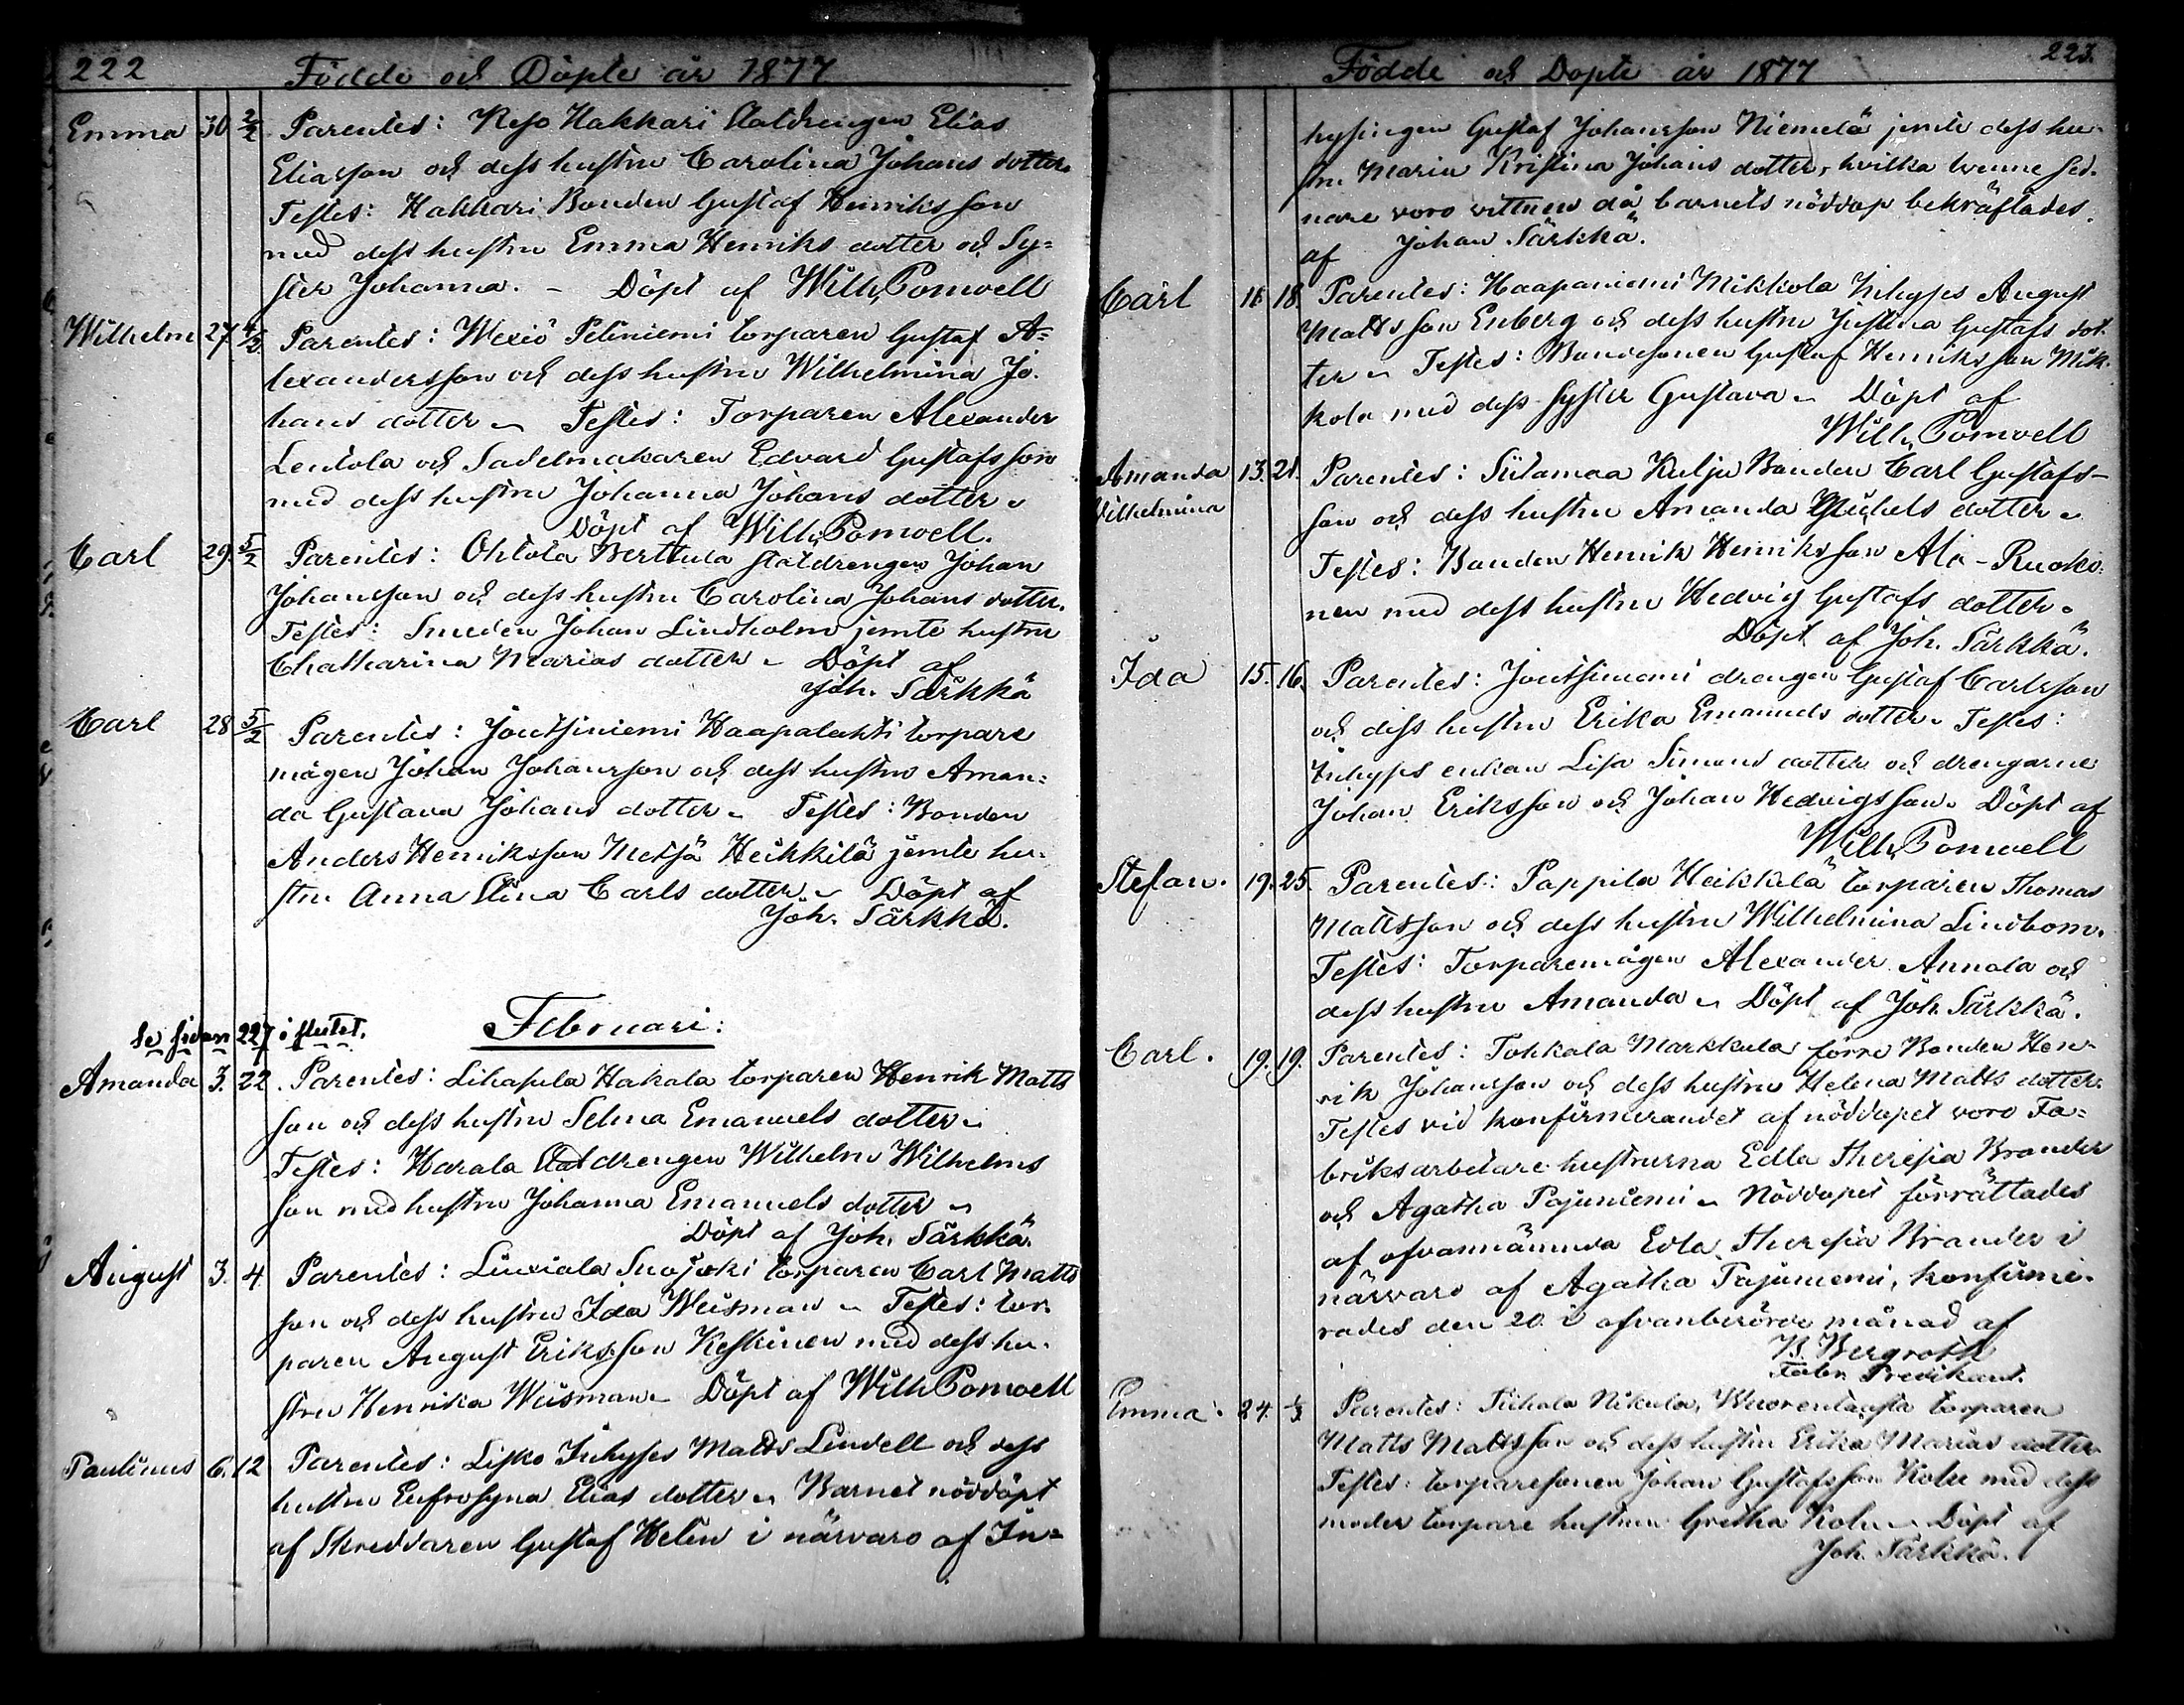 222
Födde och Döpte år 1877
Emma 30 2/2 Parentes: Keso Hakkari Statdrengen Elias
Eliasson och dess hustru Carolina Johans dotter.
Testes: Hakkari Bonden Gustaf Henriksson
med dess hustru Emma Henriks dotter och Sy=
ster Johanna. – Döpt af Wilh. Pomoell
Wilhelm 27 4/2 Parentes: Wexiö Peltniemi torparen Gustaf A=
lexandersson och dess hustru Wilhelmina Jo-
hans dotter – Testes: Torparen Alexander
Lentola och Sadelmakaren Edvard Gustafsson
med dess hustru Johanna Johans dotter –
Döpt af Wilh. Pomoell.
Carl 29. 5/2 Parentes: Ohtola Berttula statdrengen Johan
Johansson och dess hustru Carolina Johans dotter.
Testes: Smeden Johan Lindholm jemte hustru
Chatharina Marias dotter – Döpt af
Joh. Särkkä
Carl 28 5/2 Parentes: Joutsiniemi Haapalahti torpare
mågen Johan Johansson och dess hustru Aman=
da Gustava Johans dotter – Testes: Bonden
Anders Henriksson Metsä Heikkilä jemte hu-
stru Anna Stina Carls dotter – Döpt af
Joh. Särkkä.
Februari:
Se sidan 227 i slutet.
Amanda 3. 22. Parentes: Lihasula Hakala torparen Henrik Matts
son och dess hustru Selma Emanuels dotter –
Testes: Harala Statdrengen Wilhelm Wilhelms
son med hustru Johanna Emanuels dotter –
Döpt af Joh. Särkkä.
August 3. 4. Parentes: Liuxiala Suojoki torparen Carl Matts
son och dess hustru Ida Weisman – Testes: tor-
paren August Eriksson Keskinen med dess hu-
stru Henrika Weisman – Döpt af Wilh. Pomoell
Paulinus 6. 12 Parentes: Lisko Inhyses Matts Lindell och dess
hustru Eufrosyna Elias dotter – Barnet nöddöpt
af Skreddaren Gustaf Helin i närvaro af In=
223.
Födde och Döpte år 1877
hysingen Gustaf Johansson Niemelä jemte dess hu-
stru Maria Kristina Johans dotter, hvilka tvenne sed-
nare voro vittnen då barnets nöddop bekräftades.
af Johan Särkkä.
Carl 11 18. Parentes: Haapaniemi Mikkola Inhyses August
Matts son Enberg och dess hustru Justina Gustafs dot-
ter – Testes: Bondesonen Gustaf Henriksson Mik-
kola med dess syster Gustava – Döpt af
Wilh. Pomoell
Amanda 13. 21. Parentes: Siitamaa Kulju Bonden Carl Gustafs-
Wilhelmina
son och dess hustru Amanda Michels dotter –
Testes: Bonden Henrik Henriksson Ala-Ruoko-
nen med dess hustru Hedvig Gustafs dotter.
Döpt af Joh. Särkkä.
Ida 15. 16. Parentes: Joutsiniemi drengen Gustaf Carlsson
och dess hustru Erika Emanuels dotter – Testes:
Inhyses enkan Lisa Simons dotter och drengarne
Johan Eriksson och Johan Hedvigsson – Döpt af
Wilh. Pomoell
Stefan. 19. 25. Parentes: Pappila Heikkilä torparen Thomas
Mattsson och dess hustru Wilhelmina Lindbom.
Testes: Torparemågen Alexander Annala och
dess hustru Amanda – Döpt af Joh. Särkkä.
Carl. 19. 19. Parentes: Tohkala Markkula förre Bonden Hen-
rik Johansson och dess hustru Helena Matts dotter.
Testes vid konfirmerandet af nöddopet voro Fa=
briksarbetare hustrurna Edla Theresia Brander
och Agatha Pajuniemi – Nöddopet förrättades
af ofvannämnda Edla Theresia Brander i
närvaro af Agatha Pajuniemi, konfirme-
rades den 20. i ofvanberörde månad af
B. Bergroth
Fabr. Predikant.
Emma. 24. 1/3. Parentes: Tiihala Nikula, Wuorentausta torparen
Matts Mattsson och dess hustru Erika Marias dotter
Testes: torparesonen Johan Gustafsson Kolu med dess
moder torpare hustrun Gretha Kolu – Döpt af
Joh. Särkkä.